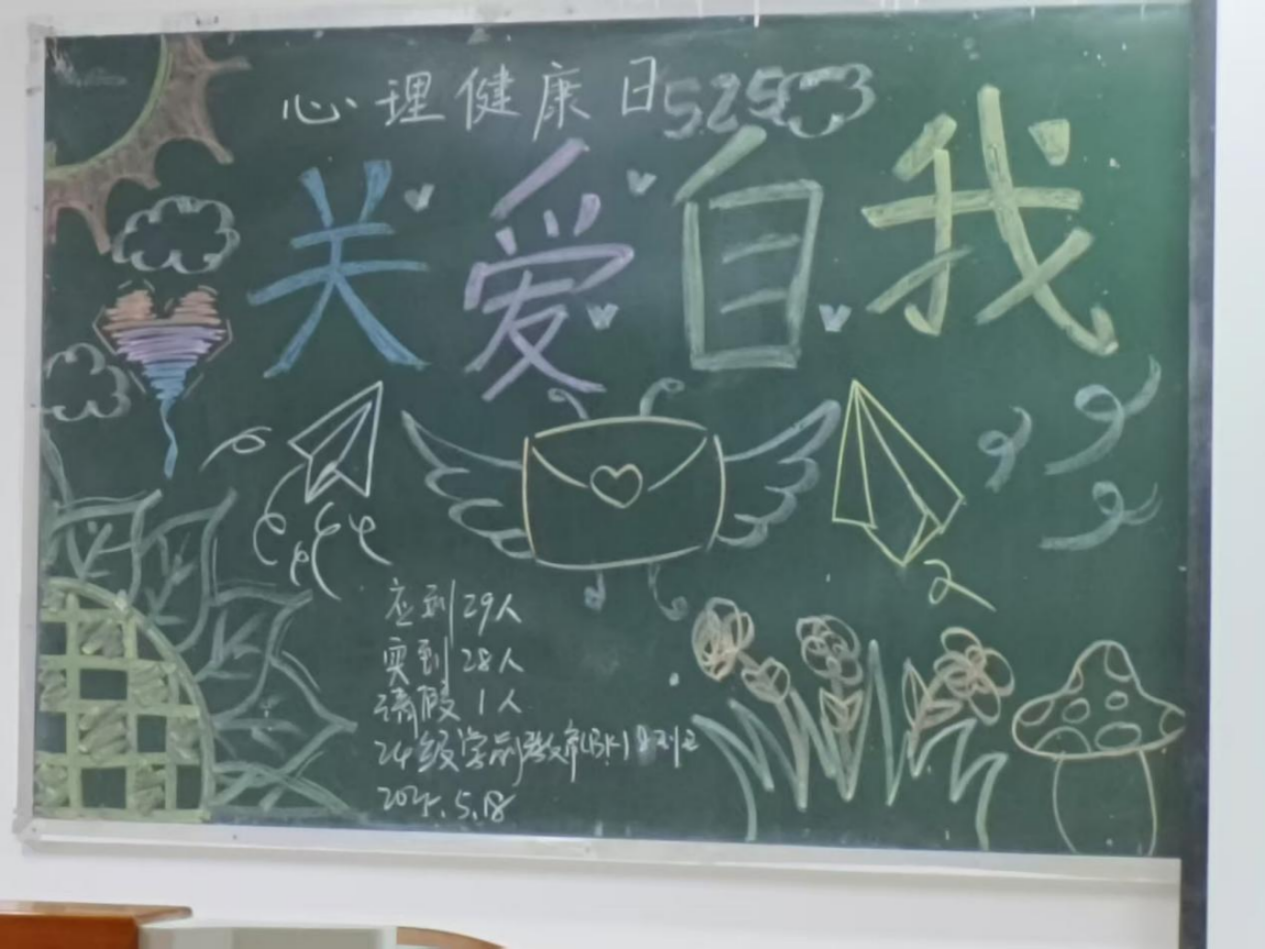 心理健康日525
关爱自我
应到29人
实到28人
请假1人
24级学前教育(BK)8班
2025.5.18